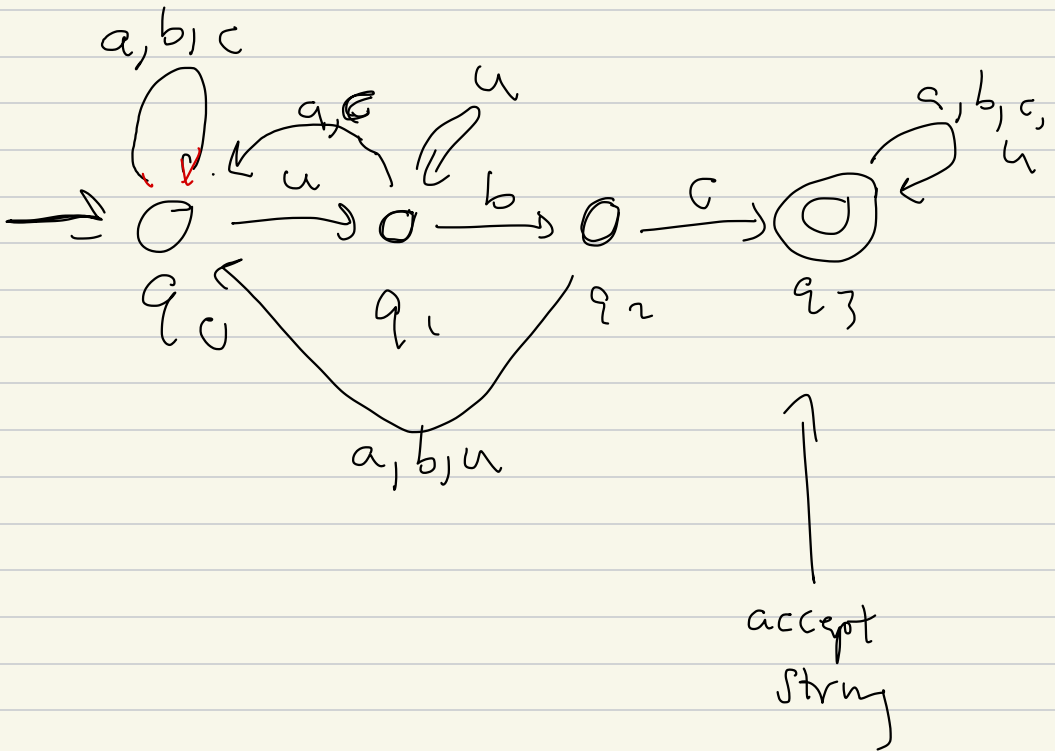 a, b, c
u
a, c
a, b, c,
u
u
b
c
q0
q1
q2
q3
a, b, u
accept
string